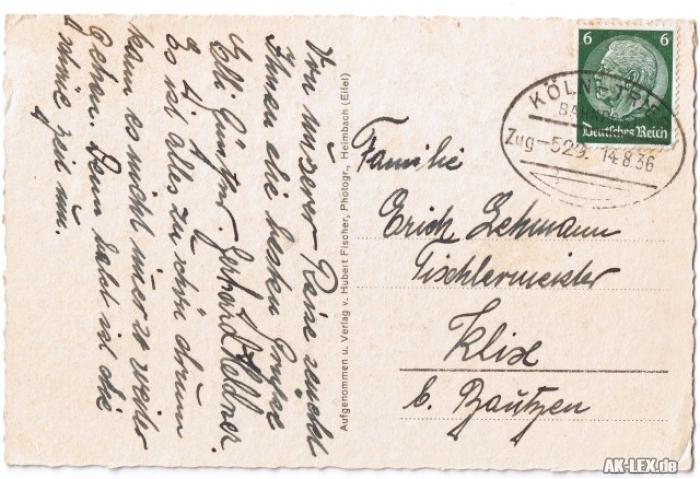 Von unserer Reise sendet
Ihnen die besten Grüße
Elli Günther. Gerhard
Es ist alles zu schön drum
kann es nicht so weiter
gehen. Denn bald ist die
Zeit um.
Aufgenommen u. Verlag v. Hubert Fischer, Photogr., Heimbach (Eifel)
6 6
Deutsches Reich
KÖLN
Zug 529. 14 8 36
Familie
Erich Lehmann
Tischlermeister
Klix
b. Bautzen
AK-LEX.de